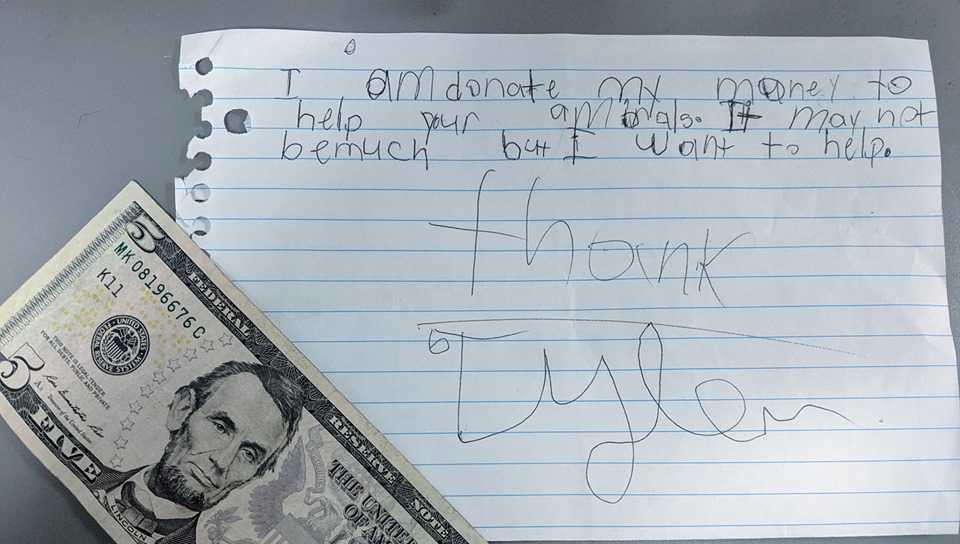 I am donate my money to
help your aminals. It may not
be much but I want to help.
thank
Tyler
5
FEDERAL RESERVE NOTE
MK 08196676 C
K11
UNITED STATES
FEDERAL RESERVE SYSTEM
THIS NOTE IS LEGAL TENDER
FOR ALL DEBTS, PUBLIC AND PRIVATE
5
FIVE
LINCOLN
THE UNITE
OF AM